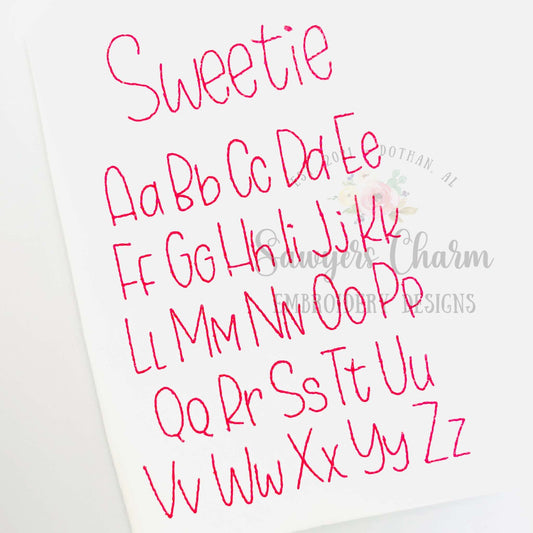 Sweetie
Aa Bb Cc Dd Ee
Ff Gg Hh Ii Jj Kk
Ll Mm Nn Oo Pp
Qq Rr Ss Tt Uu
Vv Ww Xx Yy Zz
EST. 2021 DOTHAN, AL
Sawyers Charm
EMBROIDERY DESIGNS